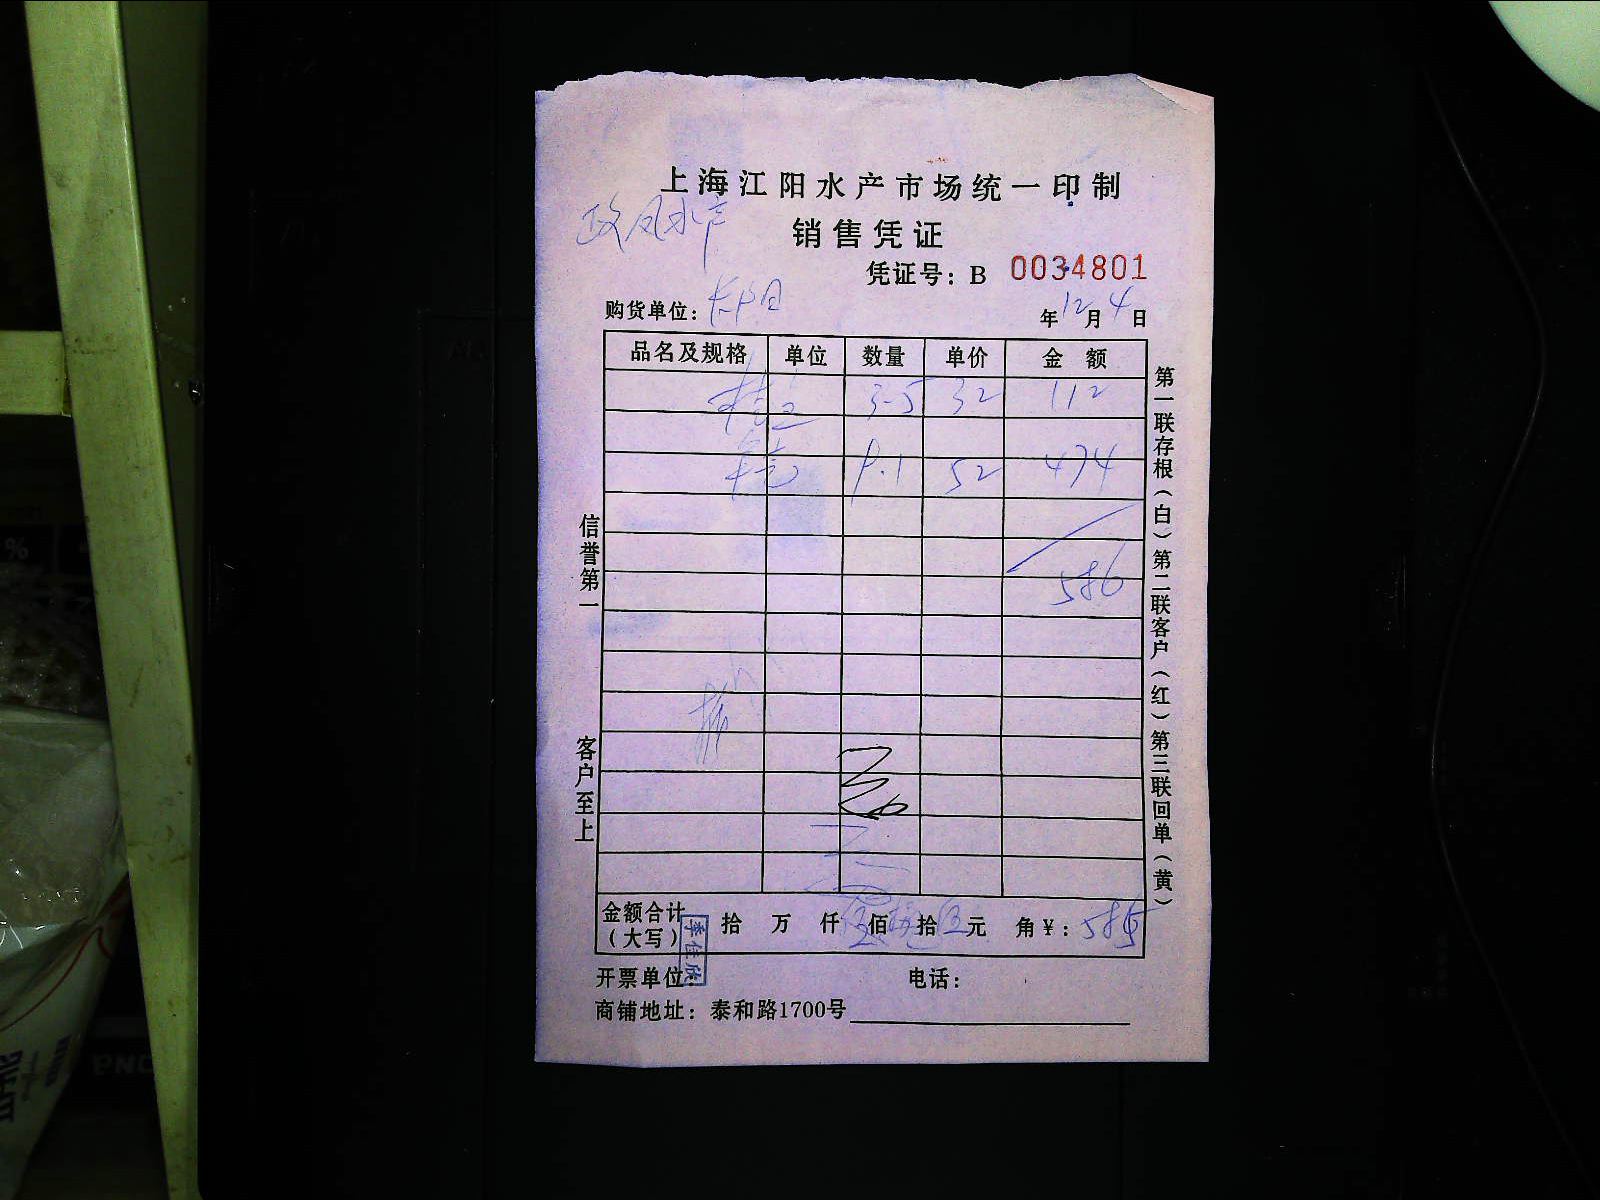 上海江阳水产市场统一印制
销售凭证
凭证号：B 0034801
购货单位：
年12月4日
品名及规格 单位 数量 单价 金额
3-5 32 112
9.1 52 474
586
信誉第一
客户至上
第一联存根（白）第二联客户（红）第三联回单（黄）
金额合计（大写） 拾 万 仟 伍佰捌拾伍元 角￥：585
季佳欣
开票单位：
电话：
商铺地址：泰和路1700号